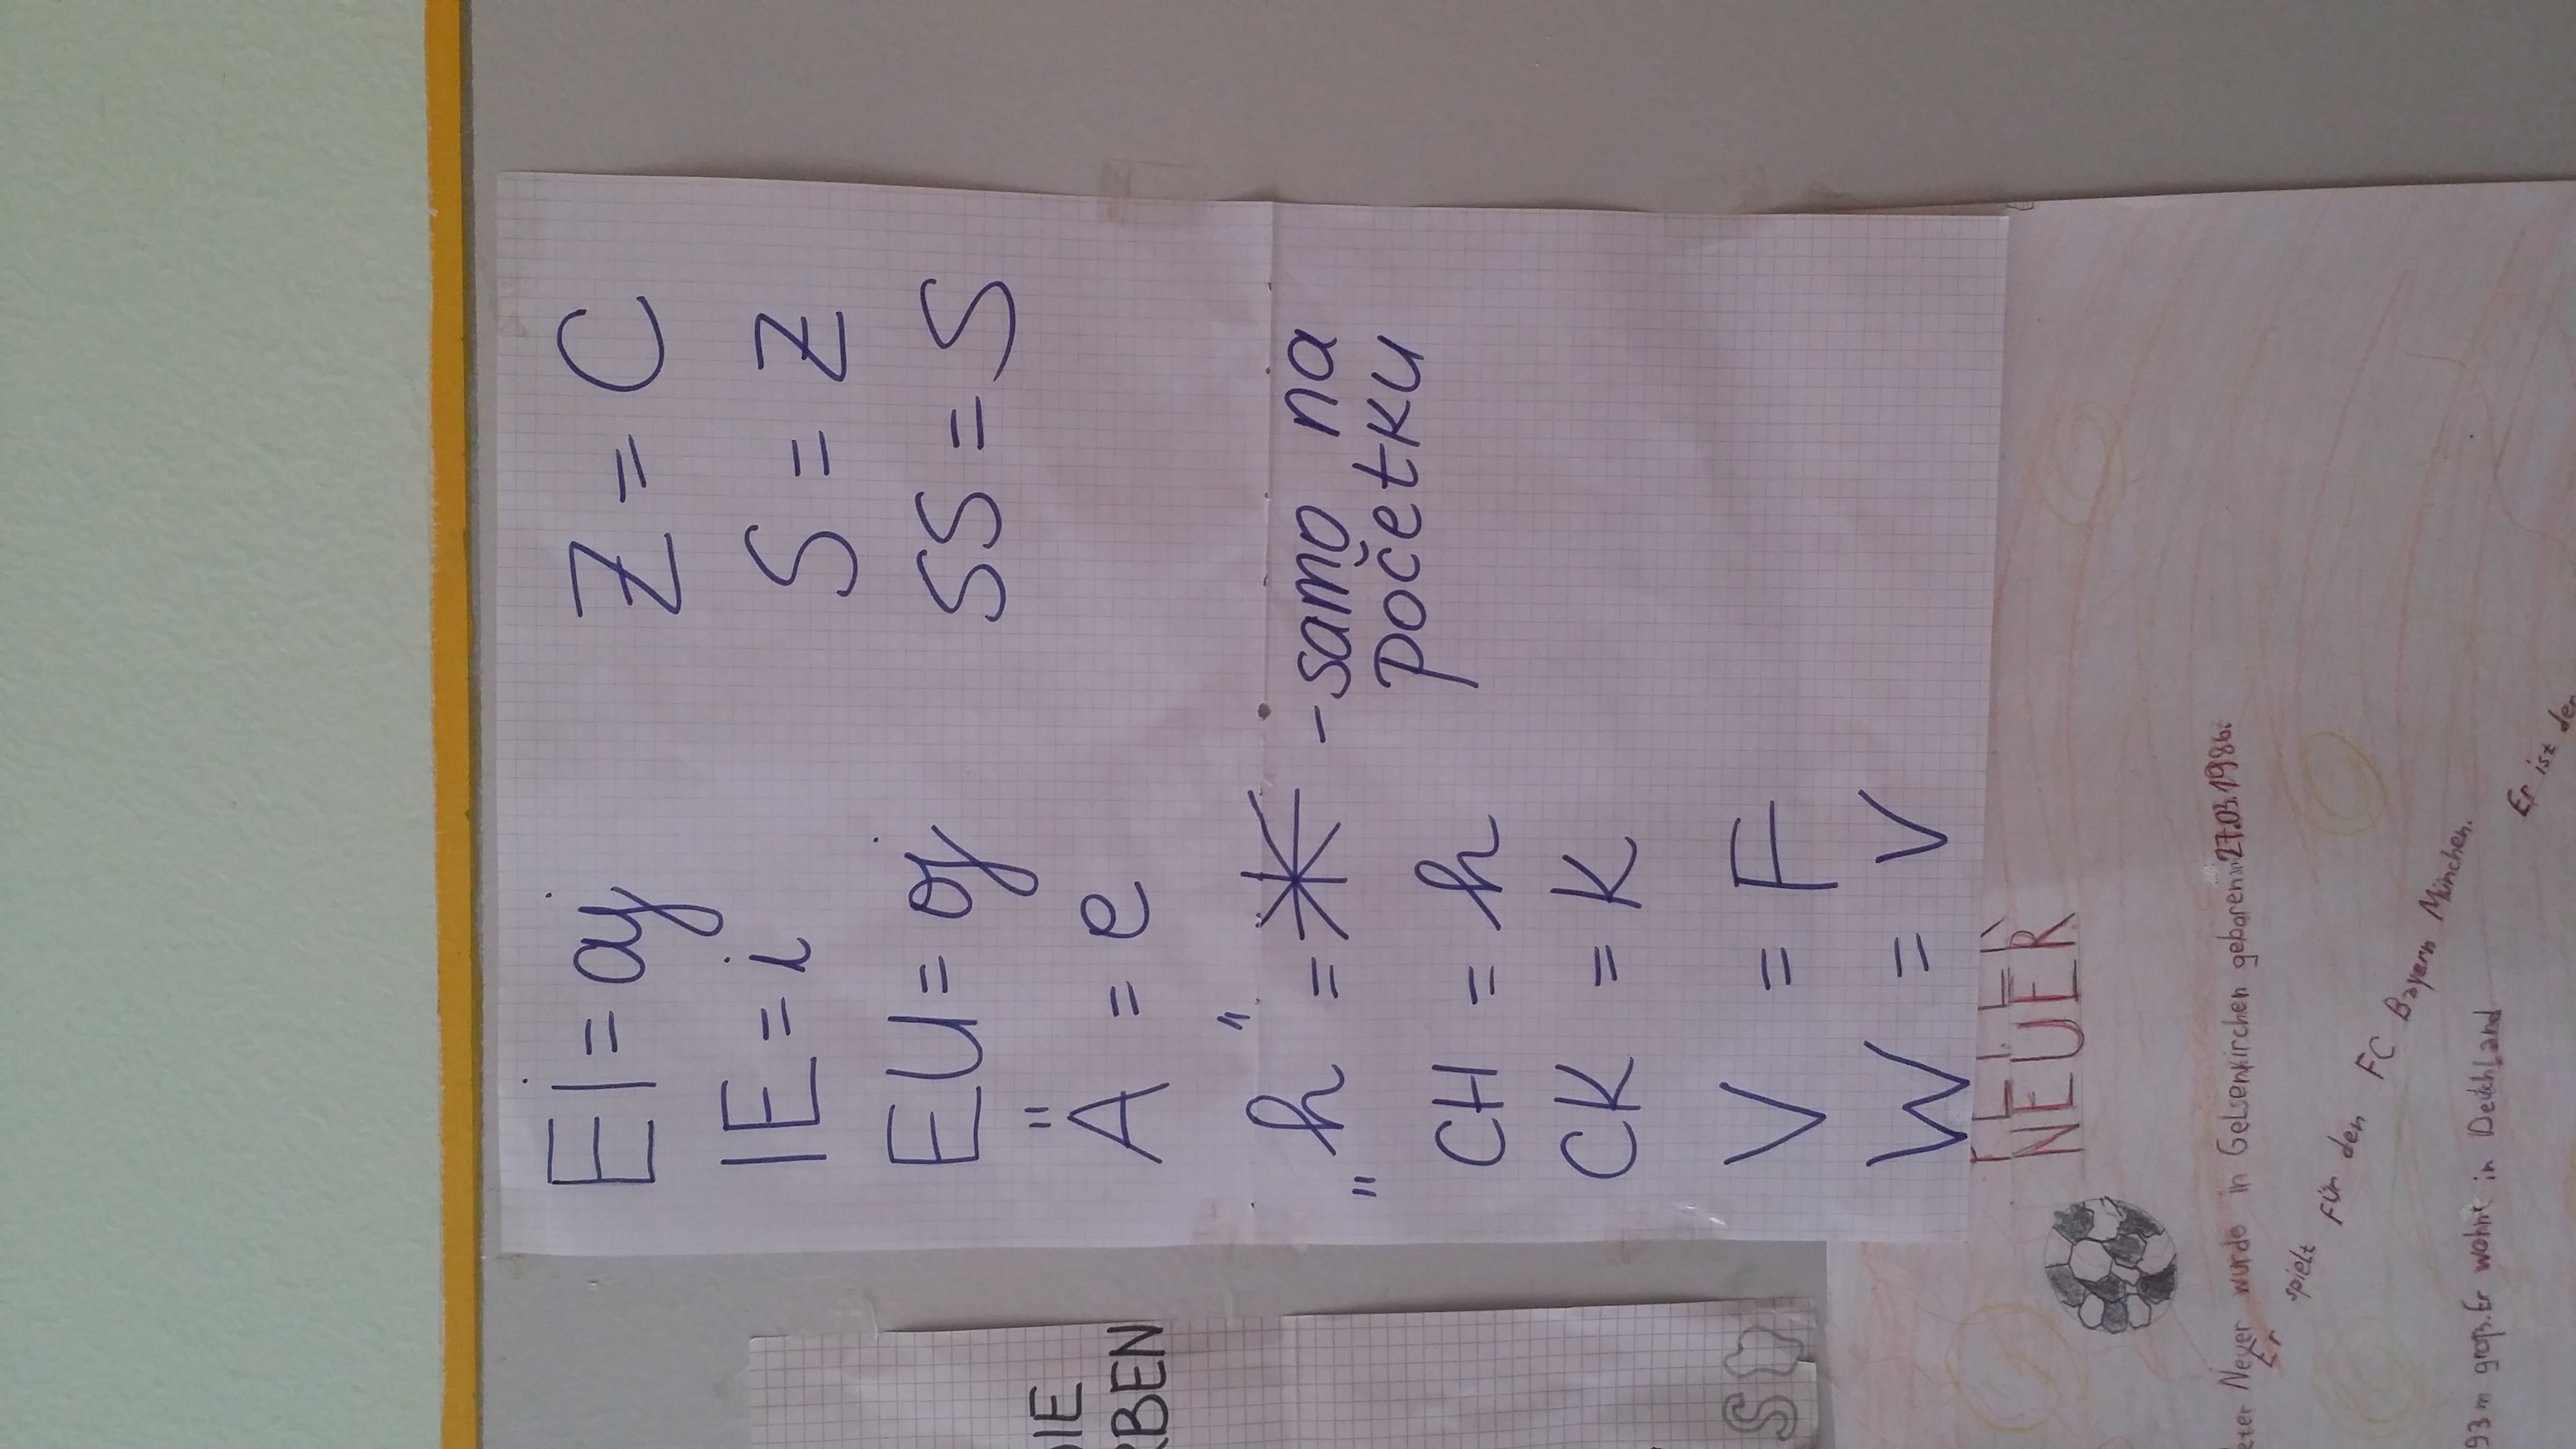 EI = aj
IE = i
EU = oj
Ä = e
„h" = * - samo na
početku
CH = h
CK = K
V = F
W = V
Z = C
S = Z
SS = S
IE
RBEN
S
NEUER
eter Neuer wurde in Gelsenkirchen geboren 27.03.1986.
Er spielt für den FC Bayern München.
93 m groß. Er wohnt in Deuchland
Er ist der